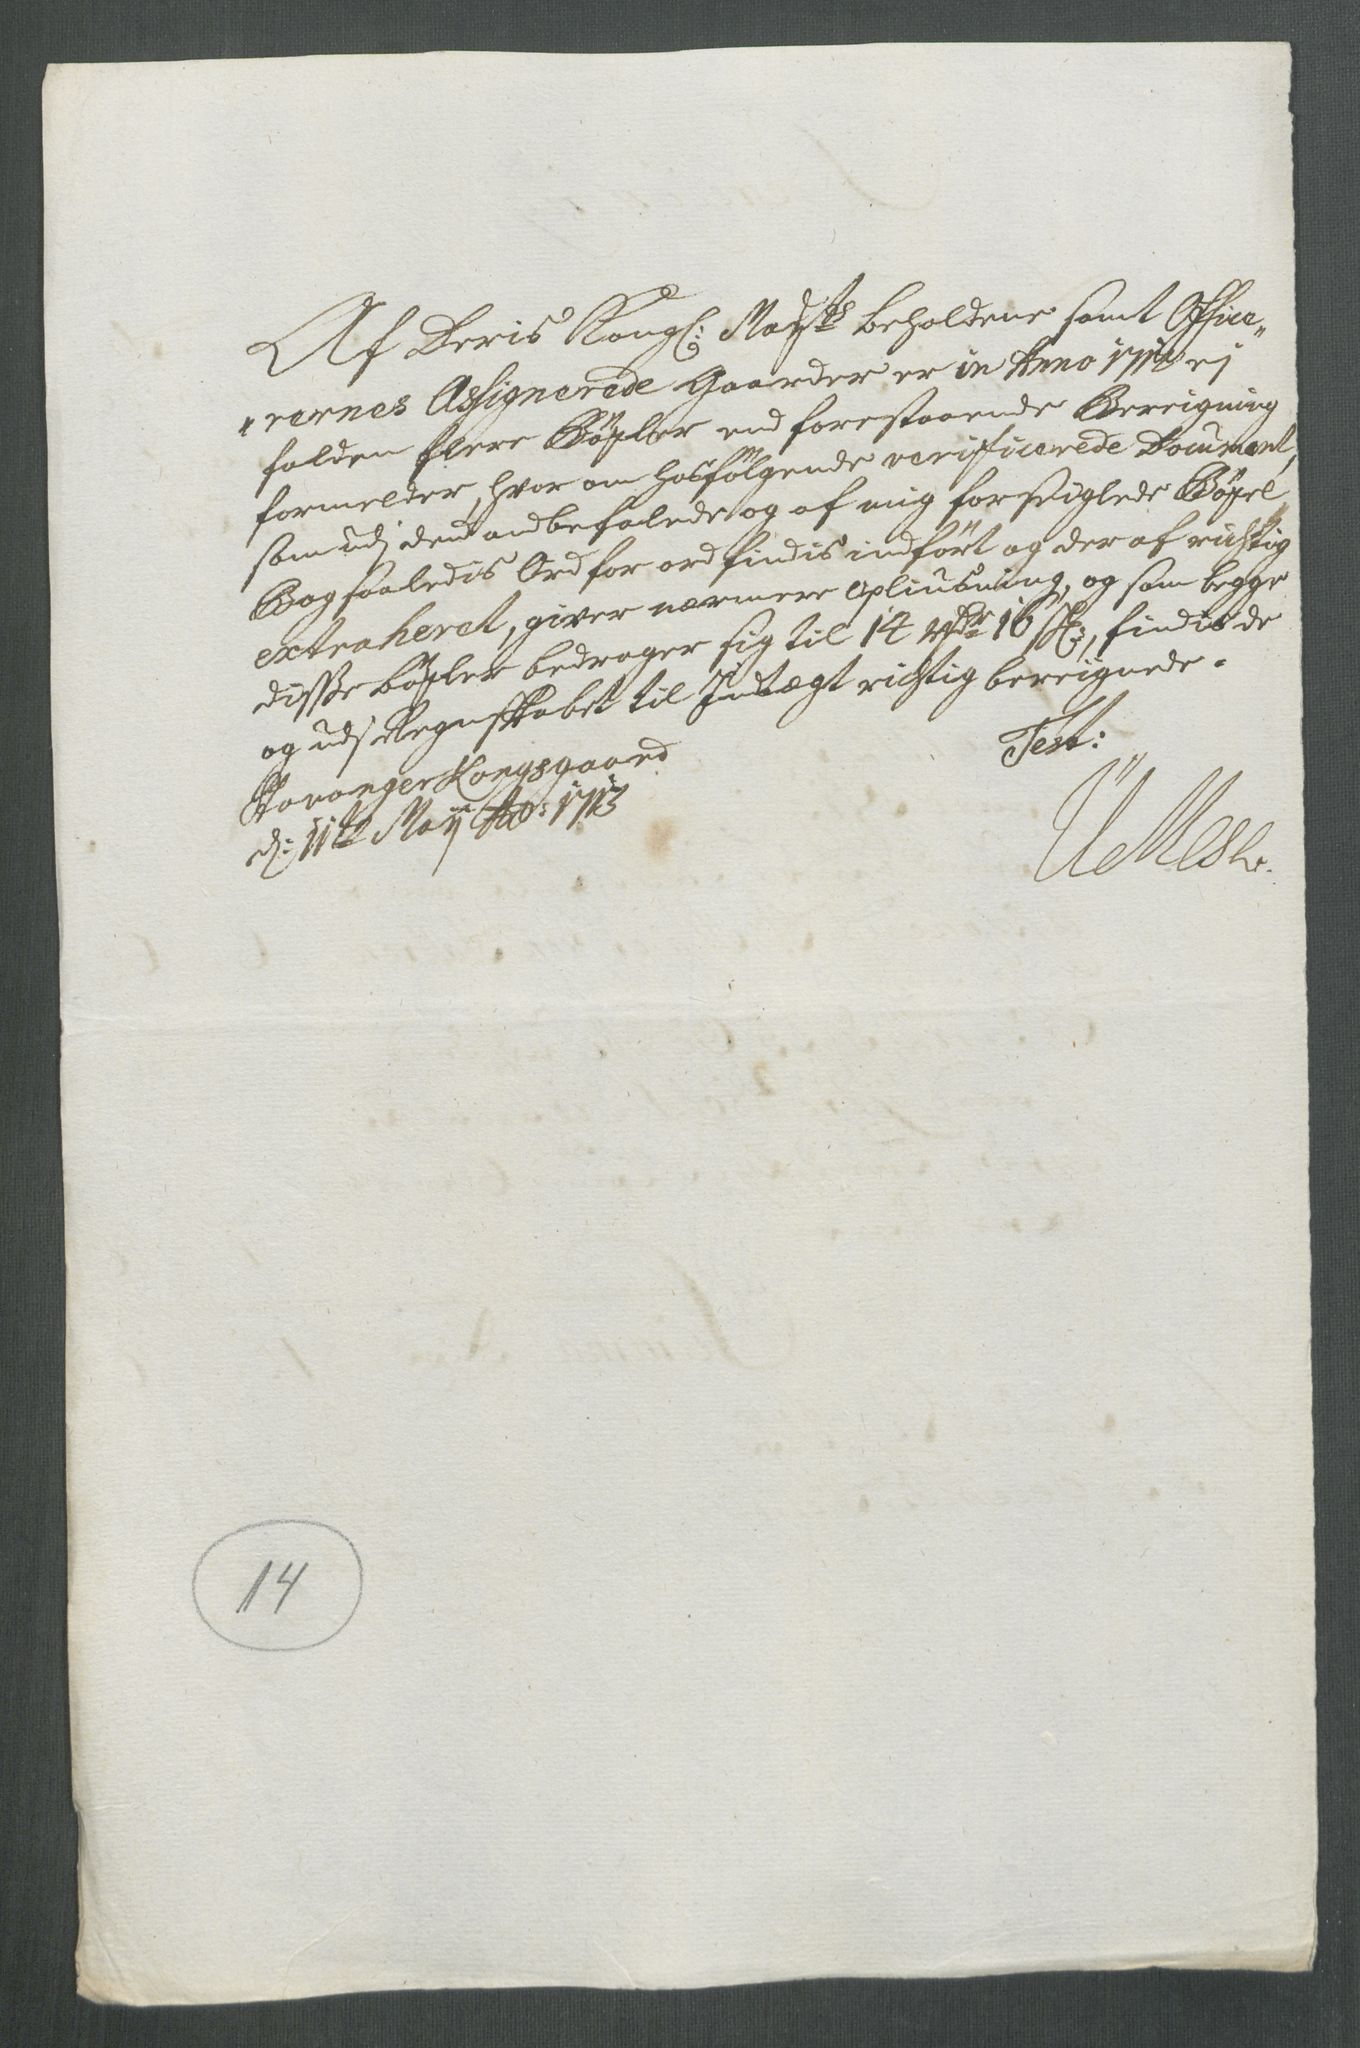 Af Deris Kongl: Mayts beholdene samt Office„
„rernes Assignerede Gaarder er in Anno 1712 ej
falden flere Böxler end forestaaende Bereigning
formelder, hvor om hosfölgende verificerede Document,
som udj den anbefalede og af mig forseiglede Böxel
Bog saaledis Ord for ord findis indfört og der af richtig
extraheret, giver nærmere opliusning, og som begge
disse böxler bedrager sig til 14 rdr 16 s, findis de
og udj Regnskabet til Indtægt richtig bereignede.
Stavanger Kongsgaard
Test:
d: 11te Maij Ao: 1713
14